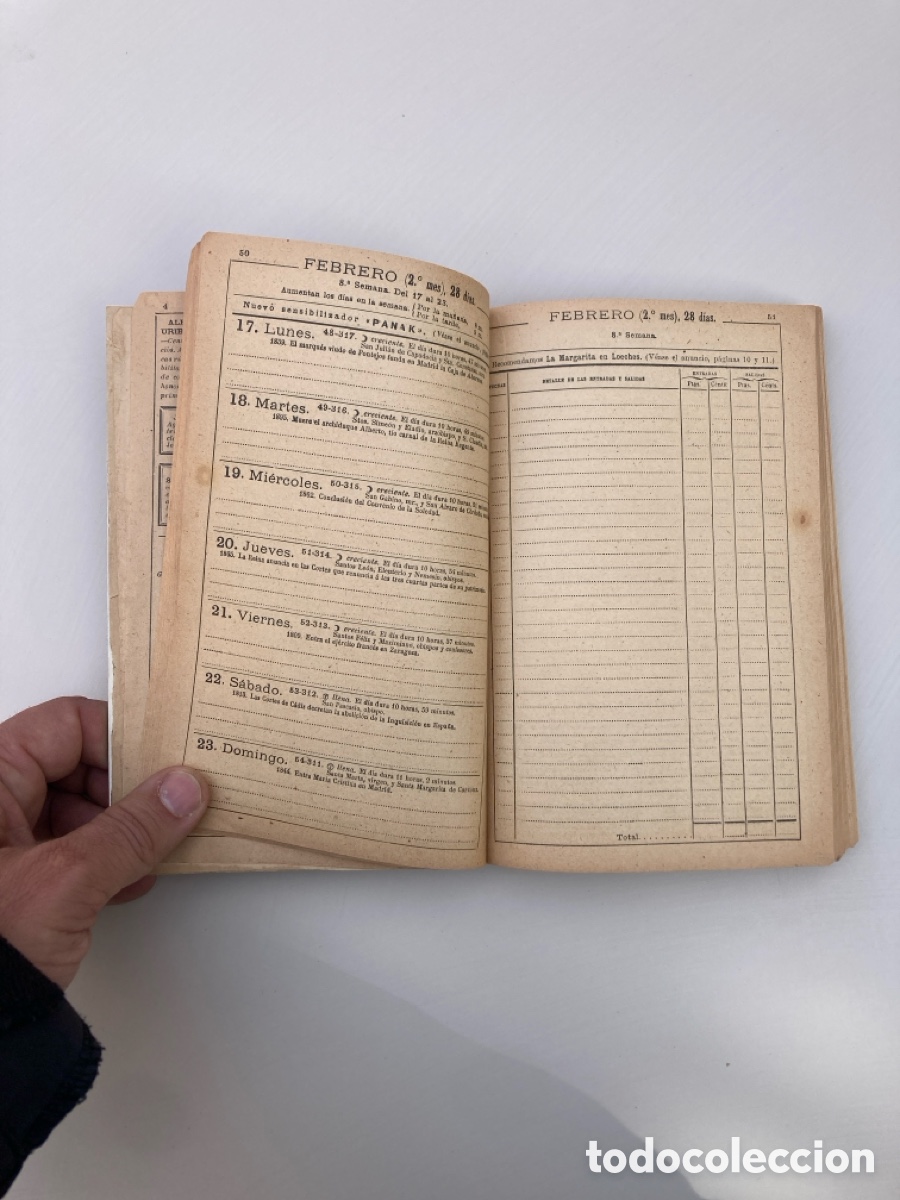 50
FEBRERO (2.º mes), 28 días.
8.ª Semana. Del 17 al 23.
Aumentan los días en la semana. (Por la mañana,
(Por la tarde,
Nuevo sensibilizador «PANAK». (Véase el
17. Lunes. 48-317. creciente. El día dura 10 horas,
San Julián de Capadocia y San
1839. El marqués viudo de Pontejos funda en Madrid la Caja de Ahorros.
18. Martes. 49-316. creciente. El día dura 10 horas, 49 minutos.
Stos. Simeón y Eladio, arzobispo, y S. Claudio,
1895. Muere el archiduque Alberto, tío carnal de la Reina Regente.
19. Miércoles. 50-315. creciente. El día dura 10 horas, 51 minutos.
San Gabino, mr., y San Alvaro de Córdoba,
1862. Conclusión del Convenio de la Soledad.
20. Jueves. 51-314. creciente. El día dura 10 horas, 54 minutos.
Santos León, Eleuterio y Nemesio, obispos.
1865. La Reina anuncia en las Cortes que renuncia á las tres cuartas partes de su patrimonio.
21. Viernes. 52-313. creciente. El día dura 10 horas, 57 minutos.
Santos Félix y Maximiano, obispos y confesores.
1809. Entra el ejército francés en Zaragoza.
22. Sábado. 53-312. llena. El día dura 10 horas, 59 minutos.
San Pascasio, obispo.
1813. Las Cortes de Cádiz decretan la abolición de la Inquisición en España.
23. Domingo. 54-311. llena. El día dura 11 horas, 2 minutos.
Santa Marta, virgen, y Santa Margarita de Cortona.
1844. Entra María Cristina en Madrid.
FEBRERO (2.º mes), 28 días.
51
8.ª Semana.
Recomendamos La Margarita en Loeches. (Véase el anuncio, páginas 10 y 11.)
DETALLE DE LAS ENTRADAS Y SALIDAS
ENTRADAS
SALIDAS
Ptas. Cénts. Ptas. Cénts.
Total
4
todocoleccion